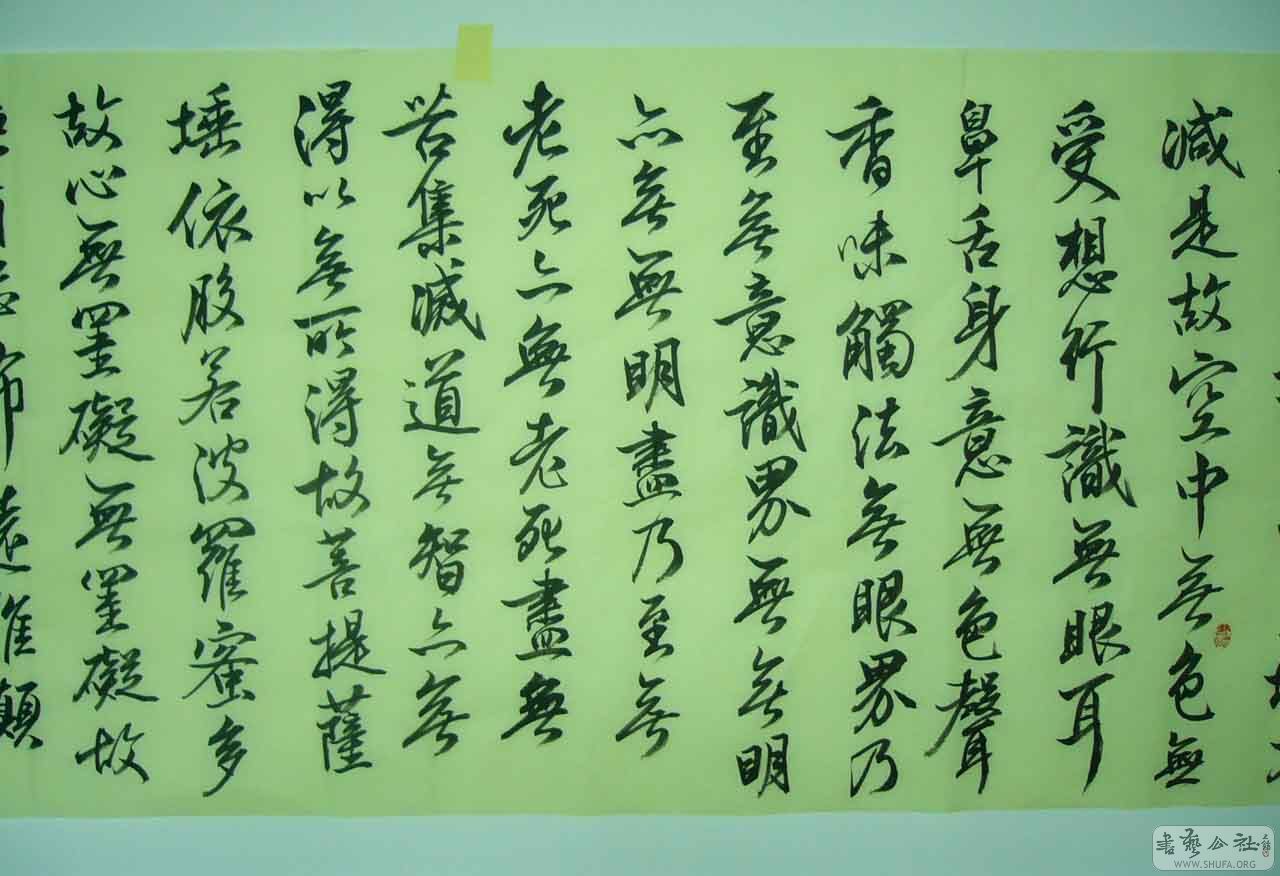 減是故空中無色無
受想行識無眼耳
鼻舌身意無色聲
香味觸法無眼界乃
至無意識界無無明
亦無無明盡乃至無
老死亦無老死盡無
苦集滅道無智亦無
得以無所得故菩提薩
埵依般若波羅蜜多
故心無罣礙無罣礙故
有恐怖遠離顛
書藝公社
WWW.SHUFA.ORG